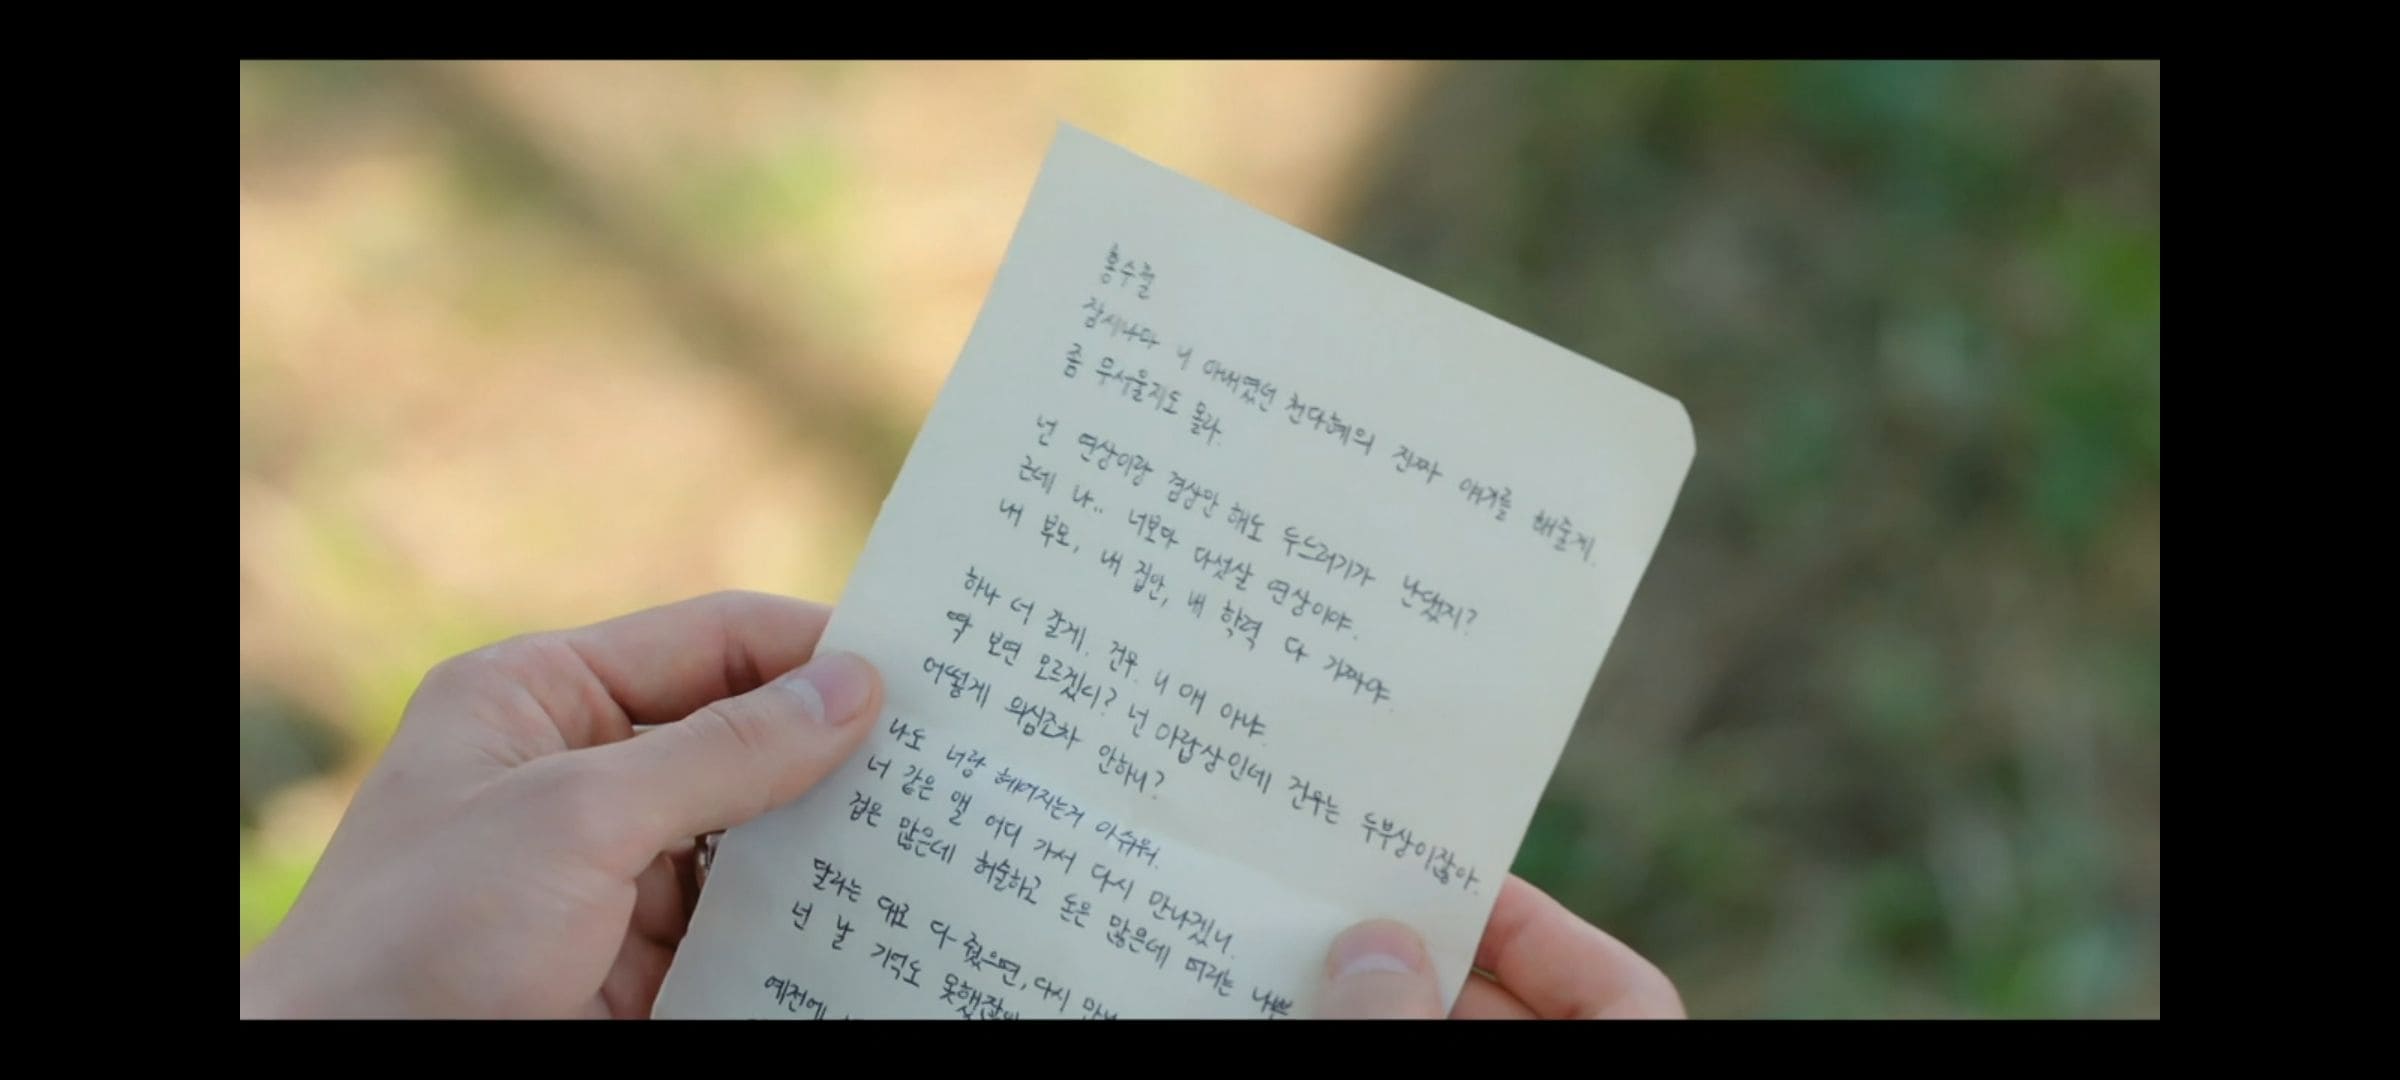 홍수철
잠시나마 니 아내였던 천다혜의 진짜 얘기를 해줄게.
좀 무서울지도 몰라.
넌 연상이랑 겸상만 해도 두드러기가 난댔지?
근데 나.. 너보다 다섯살 연상이야.
내 부모, 내 집안, 내 학력 다 가짜야.
하나 더 갈게. 건우. 니 애 아냐.
딱 보면 모르겠니? 넌 아랍상인데 건우는 두부상이잖아.
어떻게 의심조차 안하니?
나도 너랑 헤어지는거 아쉬워.
너 같은 앨 어디 가서 다시 만나겠니.
겁은 많은데 허술하고 돈은 많은데 머리는 나쁜
달라는 대로 다 줬으면, 다시
넌 날 기억도
예전에